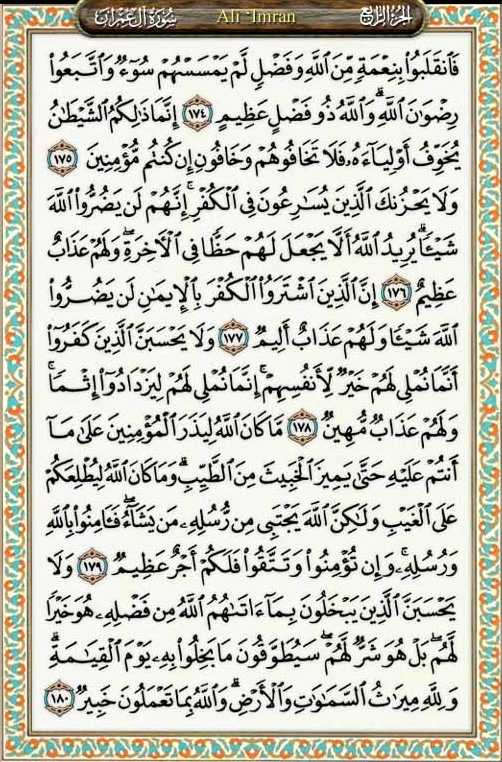 سُورَةُ آلِ عِمْرَانَ Ali 'Imran الجُزْءُ الرَّابِعُ
فَٱنقَلَبُوا۟ بِنِعْمَةٍ مِّنَ ٱللَّهِ وَفَضْلٍ لَّمْ يَمْسَسْهُمْ سُوٓءٌ وَٱتَّبَعُوا۟
رِضْوَٰنَ ٱللَّهِ ۗ وَٱللَّهُ ذُو فَضْلٍ عَظِيمٍ ١٧٤ إِنَّمَا ذَٰلِكُمُ ٱلشَّيْطَٰنُ
يُخَوِّفُ أَوْلِيَآءَهُۥ فَلَا تَخَافُوهُمْ وَخَافُونِ إِن كُنتُم مُّؤْمِنِينَ ١٧٥
وَلَا يَحْزُنكَ ٱلَّذِينَ يُسَٰرِعُونَ فِى ٱلْكُفْرِ ۚ إِنَّهُمْ لَن يَضُرُّوا۟ ٱللَّهَ
شَيْـًٔا ۗ يُرِيدُ ٱللَّهُ أَلَّا يَجْعَلَ لَهُمْ حَظًّا فِى ٱلْـَٔاخِرَةِ ۖ وَلَهُمْ عَذَابٌ
عَظِيمٌ ١٧٦ إِنَّ ٱلَّذِينَ ٱشْتَرَوُا۟ ٱلْكُفْرَ بِٱلْإِيمَٰنِ لَن يَضُرُّوا۟
ٱللَّهَ شَيْـًٔا وَلَهُمْ عَذَابٌ أَلِيمٌ ١٧٧ وَلَا يَحْسَبَنَّ ٱلَّذِينَ كَفَرُوٓا۟
أَنَّمَا نُمْلِى لَهُمْ خَيْرٌ لِّأَنفُسِهِمْ ۚ إِنَّمَا نُمْلِى لَهُمْ لِيَزْدَادُوٓا۟ إِثْمًا ۚ
وَلَهُمْ عَذَابٌ مُّهِينٌ ١٧٨ مَّا كَانَ ٱللَّهُ لِيَذَرَ ٱلْمُؤْمِنِينَ عَلَىٰ مَآ
أَنتُمْ عَلَيْهِ حَتَّىٰ يَمِيزَ ٱلْخَبِيثَ مِنَ ٱلطَّيِّبِ ۗ وَمَا كَانَ ٱللَّهُ لِيُطْلِعَكُمْ
عَلَى ٱلْغَيْبِ وَلَٰكِنَّ ٱللَّهَ يَجْتَبِى مِن رُّسُلِهِۦ مَن يَشَآءُ ۖ فَـَٔامِنُوا۟ بِٱللَّهِ
وَرُسُلِهِۦ ۚ وَإِن تُؤْمِنُوا۟ وَتَتَّقُوا۟ فَلَكُمْ أَجْرٌ عَظِيمٌ ١٧٩ وَلَا
يَحْسَبَنَّ ٱلَّذِينَ يَبْخَلُونَ بِمَآ ءَاتَىٰهُمُ ٱللَّهُ مِن فَضْلِهِۦ هُوَ خَيْرًا
لَّهُم ۖ بَلْ هُوَ شَرٌّ لَّهُمْ ۖ سَيُطَوَّقُونَ مَا بَخِلُوا۟ بِهِۦ يَوْمَ ٱلْقِيَٰمَةِ ۗ
وَلِلَّهِ مِيرَٰثُ ٱلسَّمَٰوَٰتِ وَٱلْأَرْضِ ۗ وَٱللَّهُ بِمَا تَعْمَلُونَ خَبِيرٌ ١٨٠